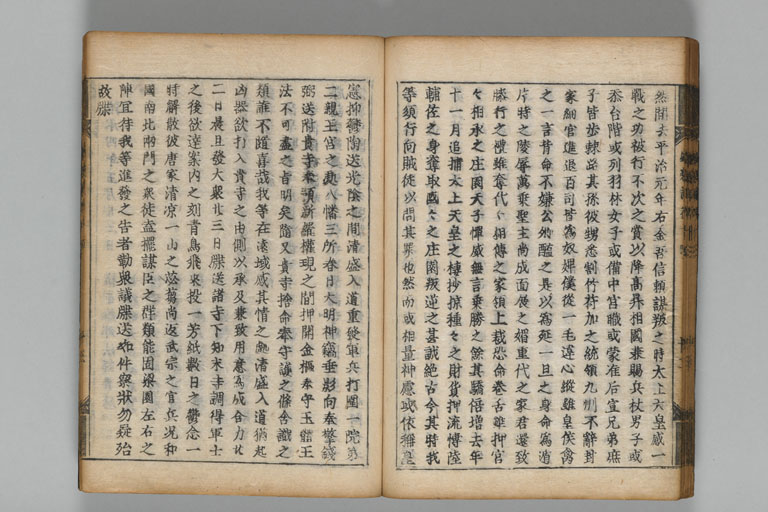 然間去平治元年右金吾信頼謀叛之時太上天皇感一
戰之功被行不次之賞以降高昇相國兼賜兵杖男子或
忝台階或列羽林女子或備中宮職或蒙准后宣兄弟庶
子皆歩棘路其孫彼甥悉割竹符加之統領九州不辭封
家細官進退百司皆為奴婢僕從一毛違心縱雖皇侯禽
之一言背命不嫌公卿濫之是以為延一旦之身命為遁
片時之陵辱萬乘聖主尚成面展之媚重代之家君還致
膝行之禮雖奪代々相傳之家領上裁恐命卷舌雖押官
々相承之庄園天子憚威無言乗勝之餘其驕倍增去年
十一月追捕太上天皇之棲抄掠種々之財貨押流博陸
輔佐之身奪取國々之庄園叛逆之甚誠絶古今其時我
等須行向賊徒以問其罪也然而或相量神慮或依稱皇
憲抑欝陶送光陰之間清盛入道重發軍兵打圍一院第
二親王宮之處八幡三所春日大明神竊垂影向奉擎錢
弼送附貴寺奉預新羅權現之間押開金樞奉守玉體王
法不可盡之旨明矣隨又貴寺捨命奉守護之條含識之
類誰不隨喜哉我等在遠域感其情之處清盛入道猶起
凶器欲打入貴寺之由側以承及兼致用意為成合力廿
二日晨旦發大衆廿三日牒送諸寺下知末寺調得軍士
之後欲達案內之刻青鳥飛來投一芳紙數日之欝念一
時解散彼唐家清凉一山之苾蒭尚返武宗之官兵况和
國南北兩門之衆徒盍擺謀臣之群類能固梁園左右之
陣宜待我等進發之告者勒衆議牒送如件察狀勿疑殆
故牒